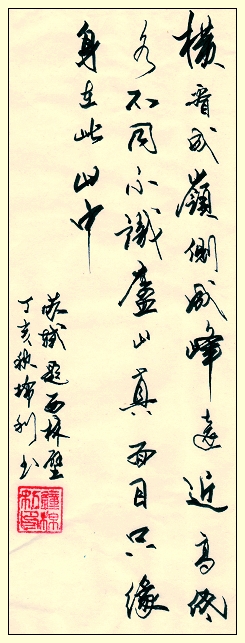 横看成嶺側成峰遠近高低
各不同不識廬山真面目只緣
身在此山中
蘇軾題西林壁
丁亥秋 利书